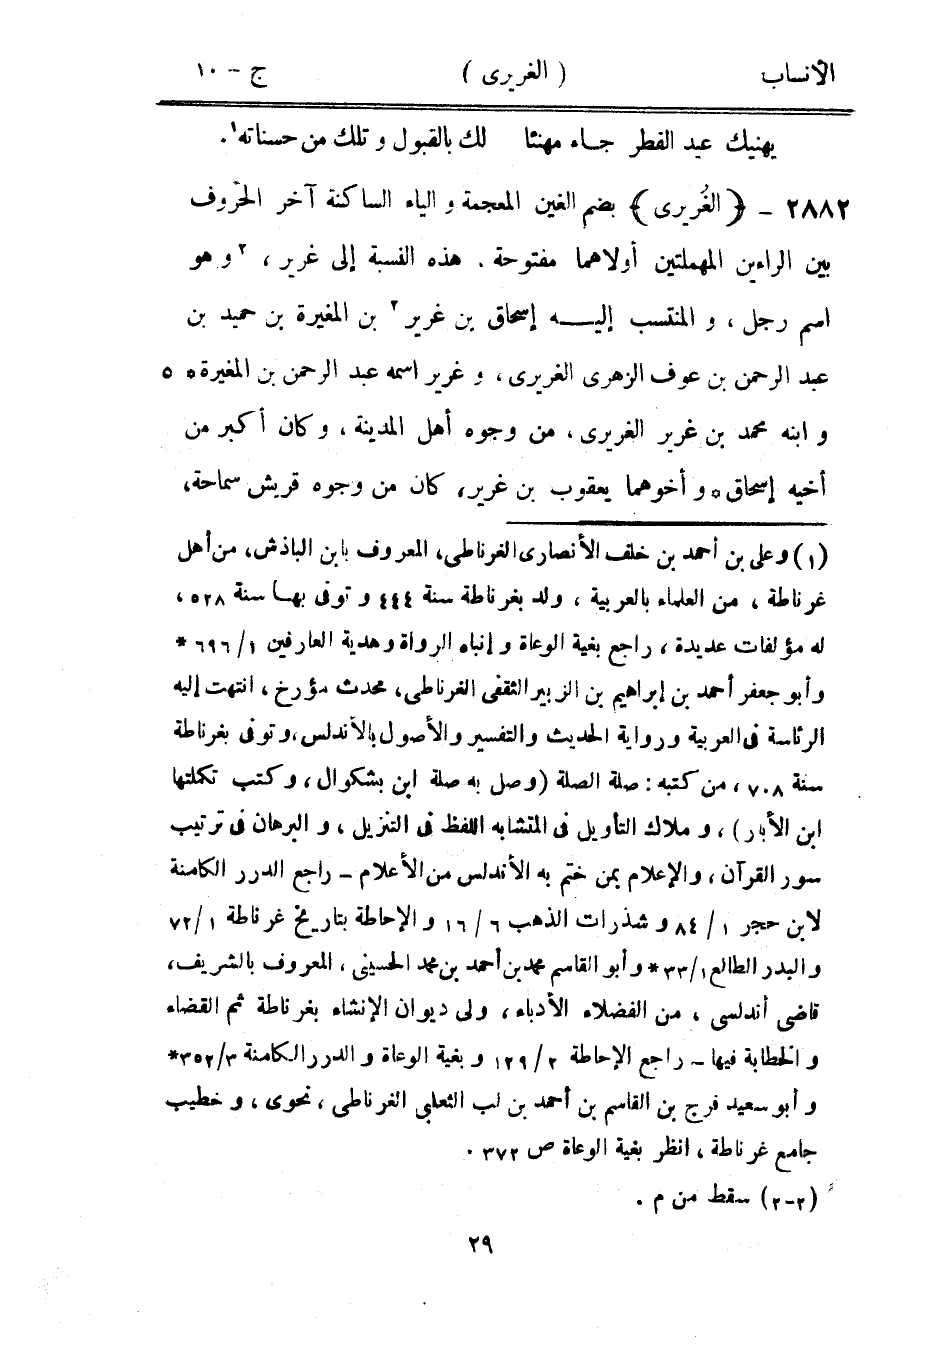 الأنساب ( الغريرى ) ج - ١٠
يهنيك عيد الفطر جــاء مهنئا لك بالقبول و تلك من حسناته¹.
٢٨٨٢ - ﴿ الغُريرى ﴾ بضم الغين المعجمة و الياء الساكنة آخر الحروف
بين الراءين المهملتين أولاهما مفتوحة . هذه النسبة إلى غرير ، ²و هو
اسم رجل ، و المنتسب إليــــه إسحاق بن غرير² بن المغيرة بن حميد بن
عبد الرحمن بن عوف الزهرى الغريرى ، و غرير اسمه عبد الرحمن بن المغيرة * ٥
و ابنه محمد بن غرير الغريرى ، من وجوه أهل المدينة ، و كان أكبر من
أخيه إسحاق * و أخوهما يعقوب بن غرير ، كان من وجوه قريش سماحة ،
(١) و على بن أحمد بن خلف الأنصارى الغرناطى ، المعروف بابن الباذش ، من أهل
غرناطة ، من العلماء بالعربية ، ولد بغرناطة سنة ٤٤٤ و توفى بهــا سنة ٥٢٨ ،
له مؤلفات عديدة ، راجع بغية الوعاة و إنباه الرواة و هدية العارفين ١/ ٦٩٦ *
و أبو جعفر أحمد بن إبراهيم بن الزبير الثقفى الغرناطى ، محدث مؤرخ ، انتهت إليه
الرئاسة فى العربية و رواية الحديث و التفسير و الأصول بالأندلس ، و توفى بغرناطة
سنة ٧٠٨ ، من كتبه : صلة الصلة (وصل به صلة ابن بشكوال ، و كتب تكملتها
ابن الأبار) ، و ملاك التأويل فى المتشابه اللفظ فى التنزيل ، و البرهان فى ترتيب
سور القرآن ، و الإعلام بمن ختم به الأندلس من الأعلام – راجع الدرر الكامنة
لابن حجر ١ / ٨٤ و شذرات الذهب ٦ / ١٦ و الإحاطة بتاريخ غرناطة ١/ ٧٢
و البدر الطالع ١/ ٣٣ * و أبو القاسم محمد بن أحمد بن محمد الحسينى ، المعروف بالشريف ،
قاضى أندلسى ، من الفضلاء الأدباء ، ولى ديوان الإنشاء بغرناطة ثم القضاء
و الخطابة فيها – راجع الإحاطة ٢ / ١٢٩ و بغية الوعاة و الدرر الكامنة ٣/ ٣٥٢ *
و أبو سعيد فرج بن القاسم بن أحمد بن لب الثعلبى الغرناطى ، نحوى ، و خطيب
جامع غرناطة ، انظر بغية الوعاة ص ٣٧٢ .
(٢-٢) سقط من م .
٢٩